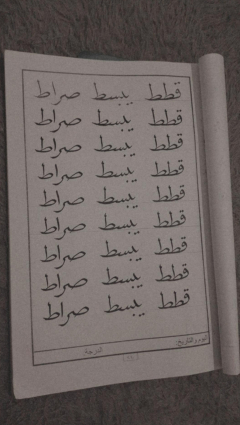 قطط يبسط صراط
قطط يبسط صراط
قطط يبسط صراط
قطط يبسط صراط
قطط يبسط صراط
قطط يبسط صراط
قطط يبسط صراط
قطط يبسط صراط
قطط يبسط صراط
اليوم والتاريخ: الدرجة